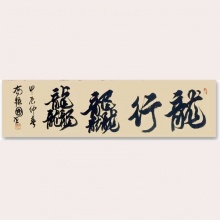 龍行龘龘
甲辰仲春